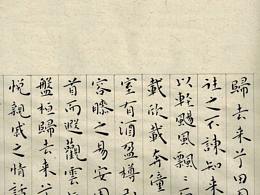 歸去来兮田
往之不諫知来
以輕颺風飄
載欣載奔僮
室有酒盈樽引
容膝之易安
首而遐觀雲
盤桓歸去来兮
悅親戚之情話